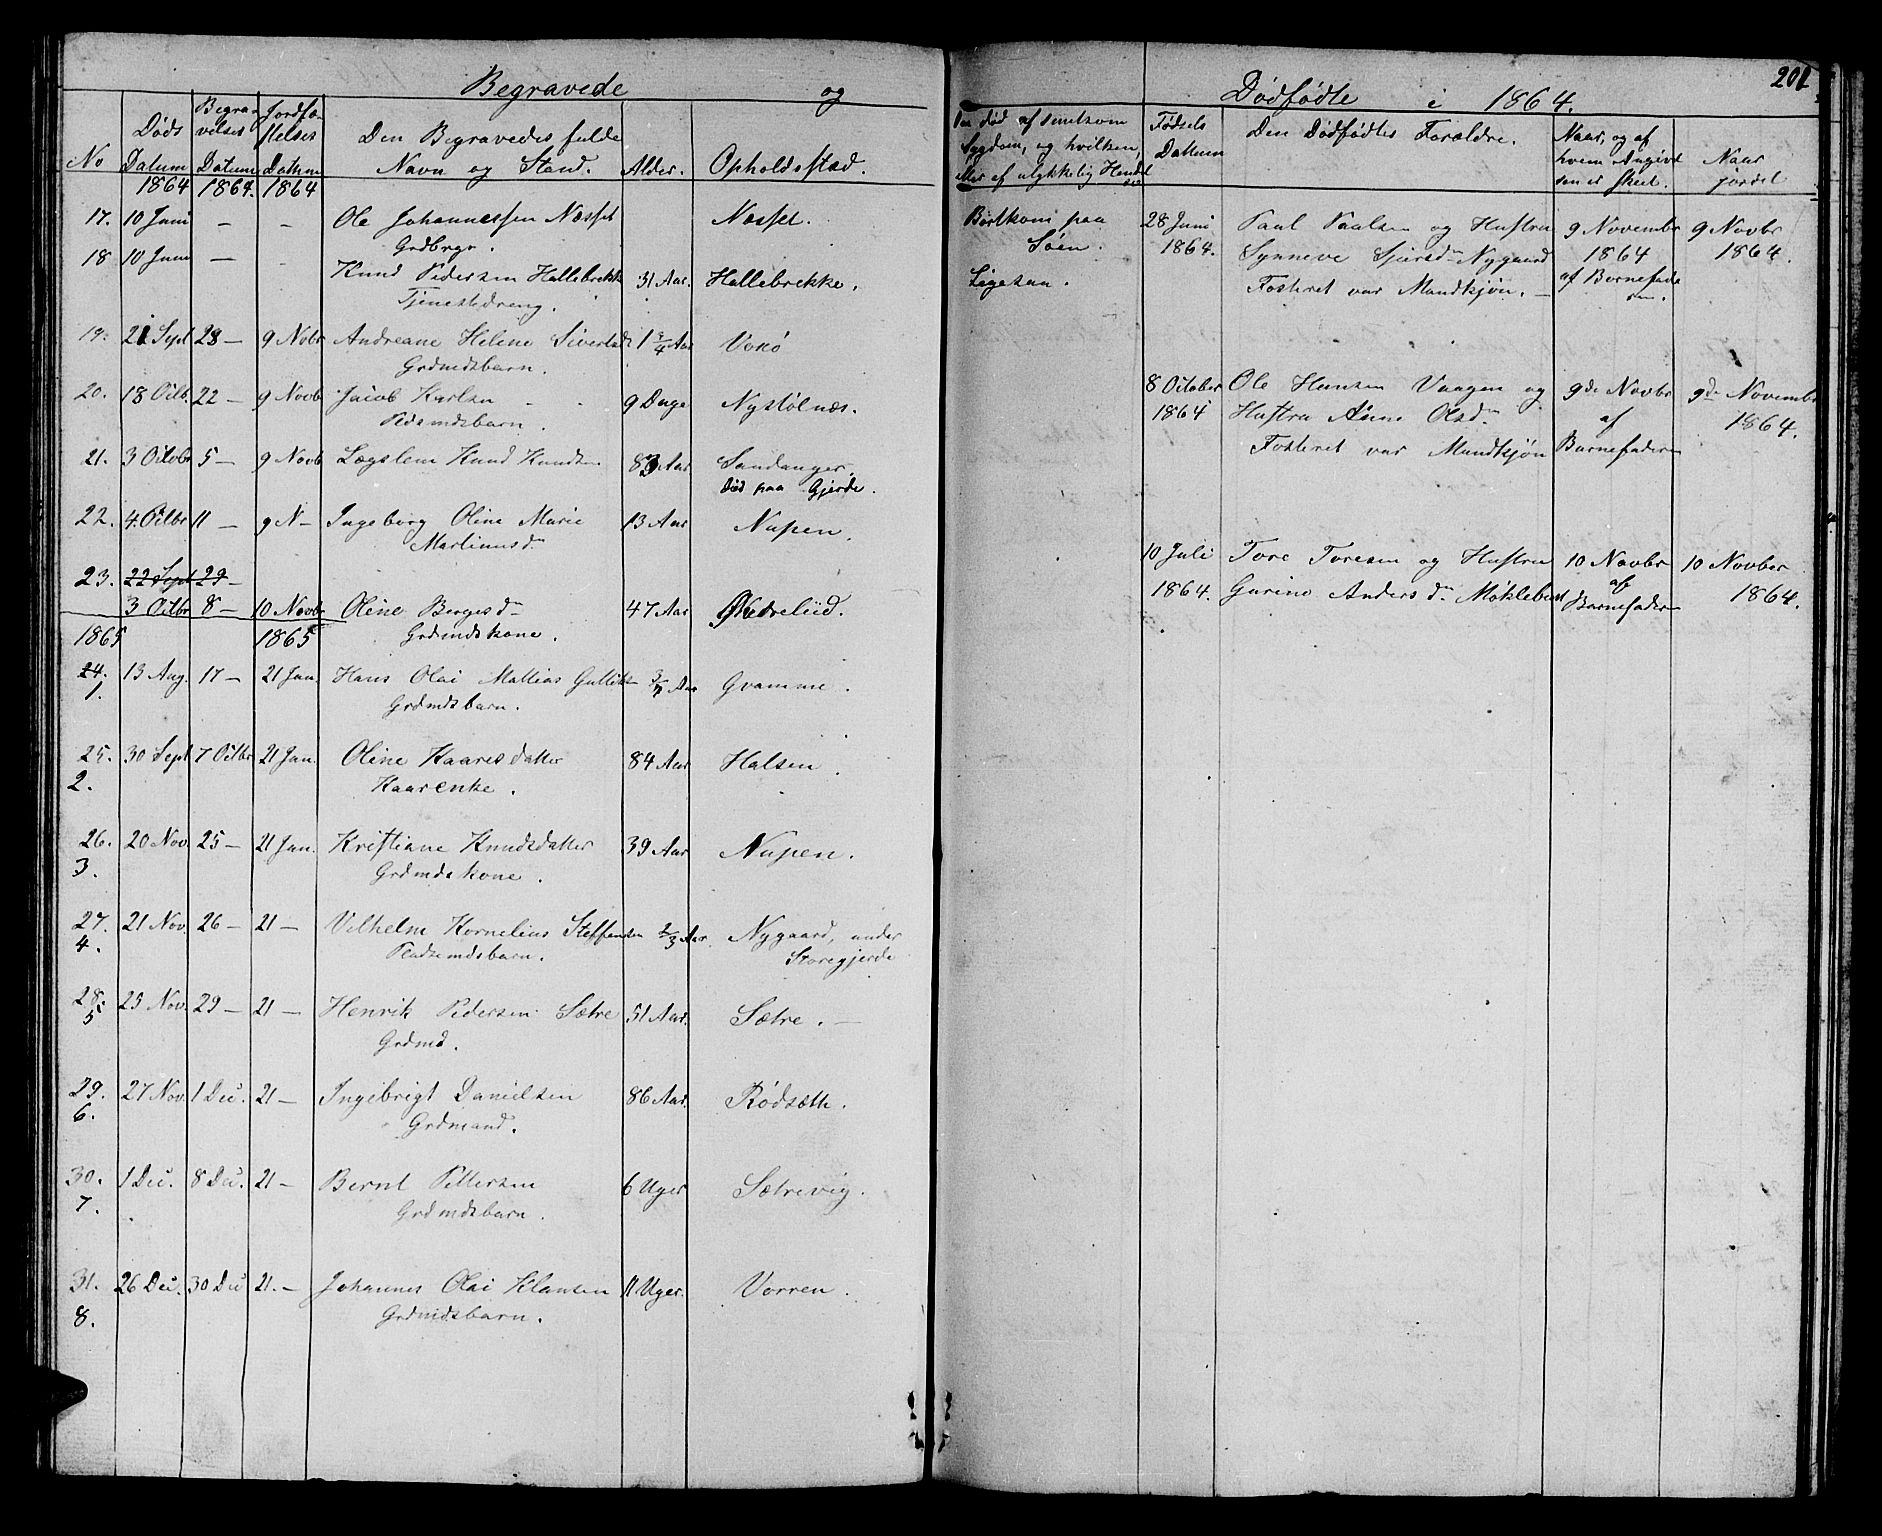 Begravede og
No
Døds Datum 1864
Begravelses Datum 1864.
Jordfæstelses Datum 1864
Den Begravedes fulde Navn og Stand.
Alder.
Opholdsstæd.
17. 10 Juni — — Ole Johannessen Nesset Nesset.
Grdbrgr.
18 10 Juni — — Knud Pedersen Hallebrekke 31 Aar. Hallebrekke.
Tjenestedreng.
19. 21 Sept 28 — 9 Nobr Andreane Helene Sivertsd 1 3/4 Aar
Grdmdsbarn.
20. 18 Octb. 22 — 9 Novb Jacob Karlsen 9 Dage Nystølnæs.
Pladsmdsbarn.
21. 3 Octbr 5 — 9 Novb Lægslem Knud Knudsen 83 Aar Sandanger.
død paa Gjerde.
22. 4. Octbr 11 — 9 N — Ingeborg Oline Marie 13 Aar Nupen.
Martinusd
23. 22 Sept 29 —
3 Octbr 8 — 10 Novbr Oline Bergesd 47 Aar
1865 1865 Grdmdskone.
24. 13 Aug. 17 — 21 Jan. Hans Olai Mathias Aar Gvamme.
1. Grdmdsbarn.
25. 30 Sept 7 Octbr 21 Jan. Oline Kaaresdatter 84 Aar Halsen.
2. Kaarenke.
26. 20 Nov. 25 — 21 Jan. Kristiane Knudsdatter 39 Aar Nupen.
3. Grdmdskone.
27. 21 Nov. 26 — 21 — Vilhelm Kornelius Steffensen 2/3 Aar. Nygaard, under
4. Pladsmdsbarn. Storegjerde
28. 25 Nov. 29 — 21 — Henrik Pedersen Sætre 51 Aar. Sætre. —
5 Grdmd.
29. 27 Nov. 1 Dec. 21 — Ingebrigt Danielsen 86 Aar. Rødsæth.
6. Grdmand.
30. 1 Dec. 8 Dec. 21 — Bernt Pettersen 6 Uger Sætrevig.
7. Grdmdsbarn.
31. 26 Dec. 30 Dec 21. — Johannes Olai Klausen 11 Uger. Vorren.
8. Grdmdsbarn.
201
Dødfødte i 1864.
død af smitsom
Sygdom, og hvilken,
eller af ulykkelig Hendel
se
Fødsels Dattum
Den Dødfødtes Forældre.
Naar, og af
hvem Angivel
sen er skeet.
Naar
jordet
Bortkom paa
Søen.
Ligesaa.
28 Juni Paul Paulsen og Hustru 9 Novembr 9 Novbr
1864. Synneve Sjursd Nygaard 1864 1864.
Fosteret var Mandkjøn. — af Barnefade
ren.
8 October Ole Hansen Vaagen og 9de Novbr 9de Novembr
1864 Hustru Anne Olsd af 1864.
Fosteret var Mandkjøn Barnefaderen
10 Juli Tore Toresen og Hustru 10 Novbr 10 Novber
1864. Gurine Andersd Møklebust af 1864.
Barnefaderen